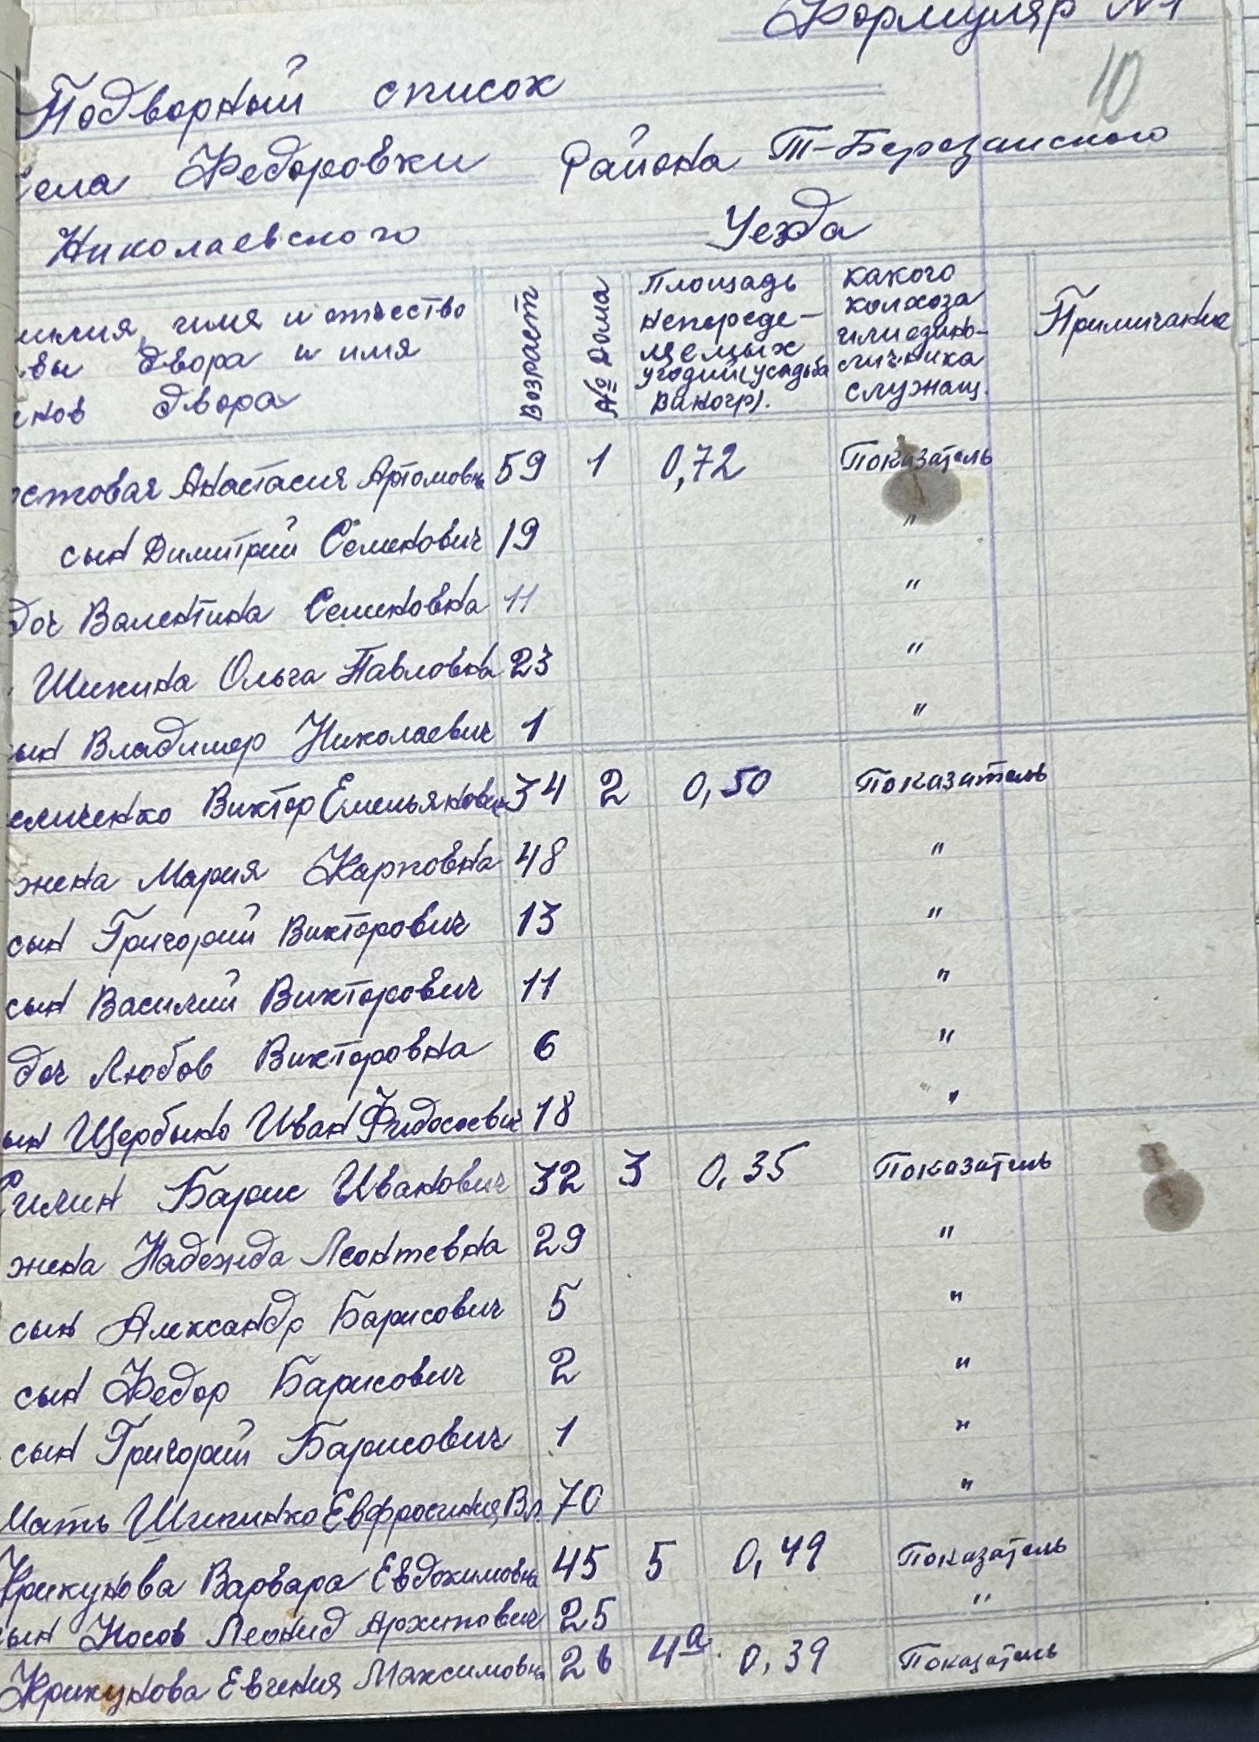 Формуляр №1
10
Подворный список
села Федоровки района Т-Березанского
Николаевского Уезда
милия, имя и отчество
вы двора и имя
нов двора
Возраст
№ Дома
Площадь
непереде-
щемых
угодий (усадьба
виногр).
какого
колхоза
или едино-
личника
служащ.
Примичание
Анастасия Артомовна 59 1 0,72 Показатель
сын Димитрий Семенович 19 "
доч Валентина Семеновна 11 "
Шикина Ольга Павловна 23 "
ын Владимер Николаевич 1 "
еличенко Виктор Емельянович 34 2 0,50 Показатель
жена Мария Карповна 48 "
сын Григорий Викторович 13 "
сын Василий Викторович 11 "
доч Любов Викторовна 6 "
ын Щербына Иван Фидосоевич 18 "
Силин Барис Иванович 32 3 0,35 Показатель
жена Надежда Леонтевна 29 "
сын Александр Барисович 5 "
сын Федор Барисович 2 "
сын Григорий Барисович 1 "
Мать Шипинко Евфросиния Вл 70 "
Крикунова Варвара Евдокимовна 45 5 0,49 Показатель
ын Носов Леонид Архипович 25 "
Крикунова Евгения Максимовна 26 4а. 0,39 Показатель